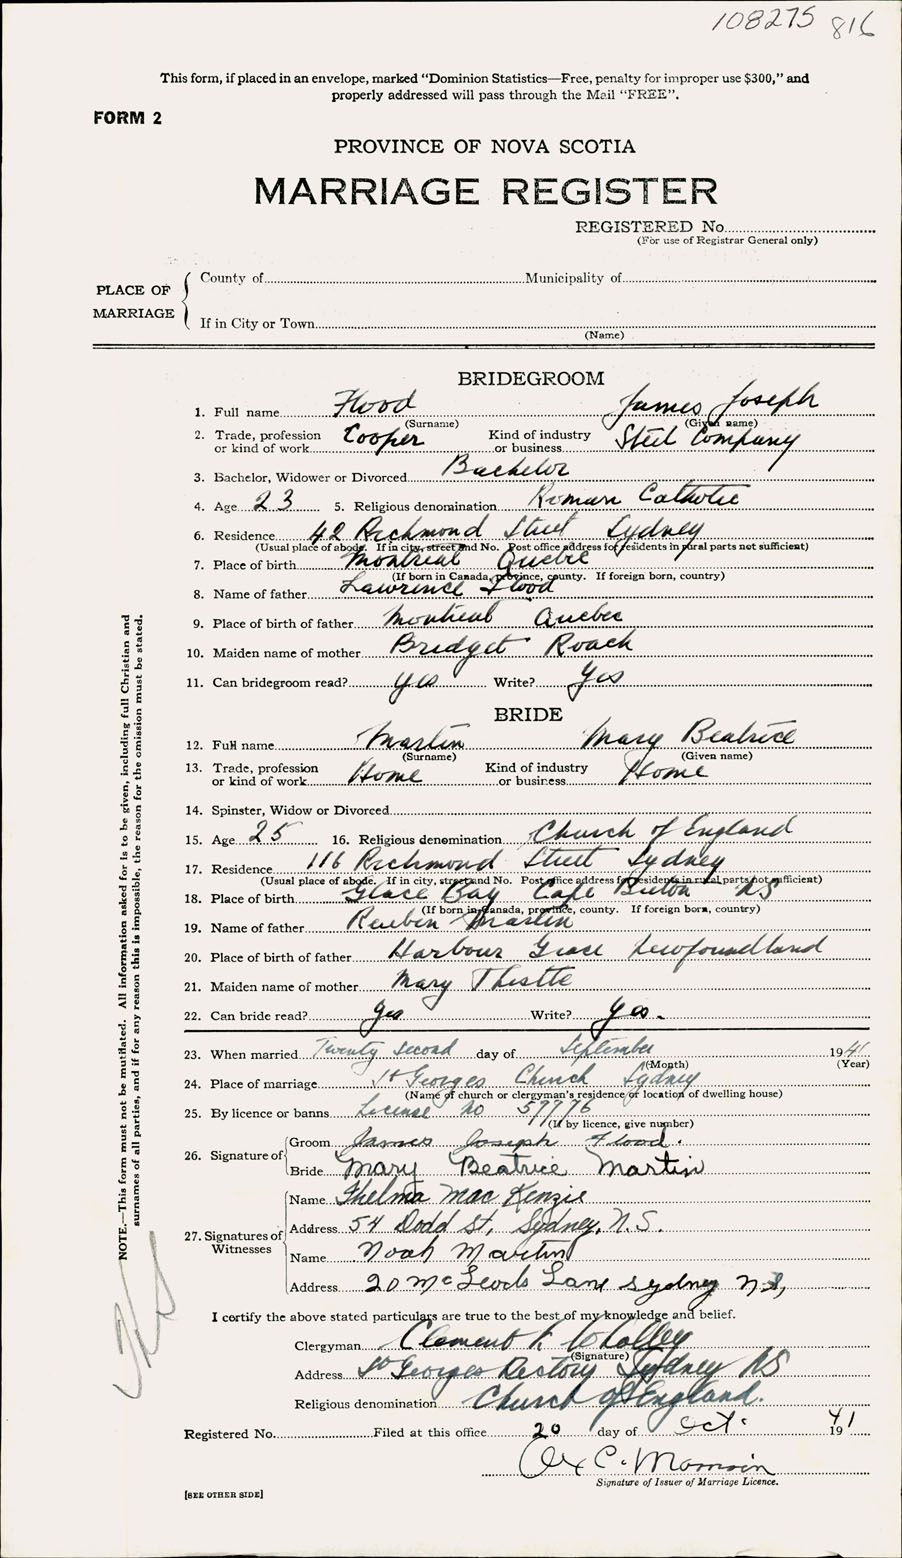 108275 816
This form, if placed in an envelope, marked “Dominion Statistics—Free, penalty for improper use $300,” and
properly addressed will pass through the Mail “FREE”.
FORM 2
PROVINCE OF NOVA SCOTIA
MARRIAGE REGISTER
REGISTERED No.
(For use of Registrar General only)
PLACE OF MARRIAGE
County of Municipality of
If in City or Town
(Name)
BRIDEGROOM
1. Full name Flood James Joseph
(Surname) (Given name)
2. Trade, profession or kind of work Cooper Kind of industry or business Steel Company
3. Bachelor, Widower or Divorced Bachelor
4. Age 23 5. Religious denomination Roman Catholic
6. Residence 42 Richmond Street Sydney
(Usual place of abode. If in city, street and No. Post office address for residents in rural parts not sufficient)
7. Place of birth Montreal Quebec
(If born in Canada, province, county. If foreign born, country)
8. Name of father Lawrence Flood
9. Place of birth of father Montreal Quebec
10. Maiden name of mother Bridget Roach
11. Can bridegroom read? yes Write? yes
BRIDE
12. Full name Martin Mary Beatrice
(Surname) (Given name)
13. Trade, profession or kind of work Home Kind of industry or business Home
14. Spinster, Widow or Divorced
15. Age 25 16. Religious denomination Church of England
17. Residence 116 Richmond Street Sydney
(Usual place of abode. If in city, street and No. Post office address for residents in rural parts not sufficient)
18. Place of birth Glace Bay Cape Breton NS
(If born in Canada, province, county. If foreign born, country)
19. Name of father Reubin Martin
20. Place of birth of father Harbour Grace Newfoundland
21. Maiden name of mother Mary Thistle
22. Can bride read? yes Write? yes.
23. When married Twenty second day of September 1941
(Month) (Year)
24. Place of marriage St Georges Church Sydney
(Name of church or clergyman's residence or location of dwelling house)
25. By licence or banns License no 57776
(If by licence, give number)
26. Signature of
Groom James Joseph Flood.
Bride Mary Beatrice Martin
27. Signatures of Witnesses
Name Thelma MacKenzie
Address 54 Dodd St, Sydney, N.S.
Name Noah Martin
Address 20 McLeods Lane Sydney N.S,
I certify the above stated particulars are true to the best of my knowledge and belief.
Clergyman Clement F. Whalley
(Signature)
Address St Georges Rectory Sydney NS
Religious denomination Church of England.
Registered No. Filed at this office 20 day of Oct. 1941
C. Morrison
Signature of Issuer of Marriage Licence.
[SEE OTHER SIDE]
NOTE.—This form must not be mutilated. All information asked for is to be given, including full Christian and
surnames of all parties, and if for any reason this is impossible, the reason for the omission must be stated.